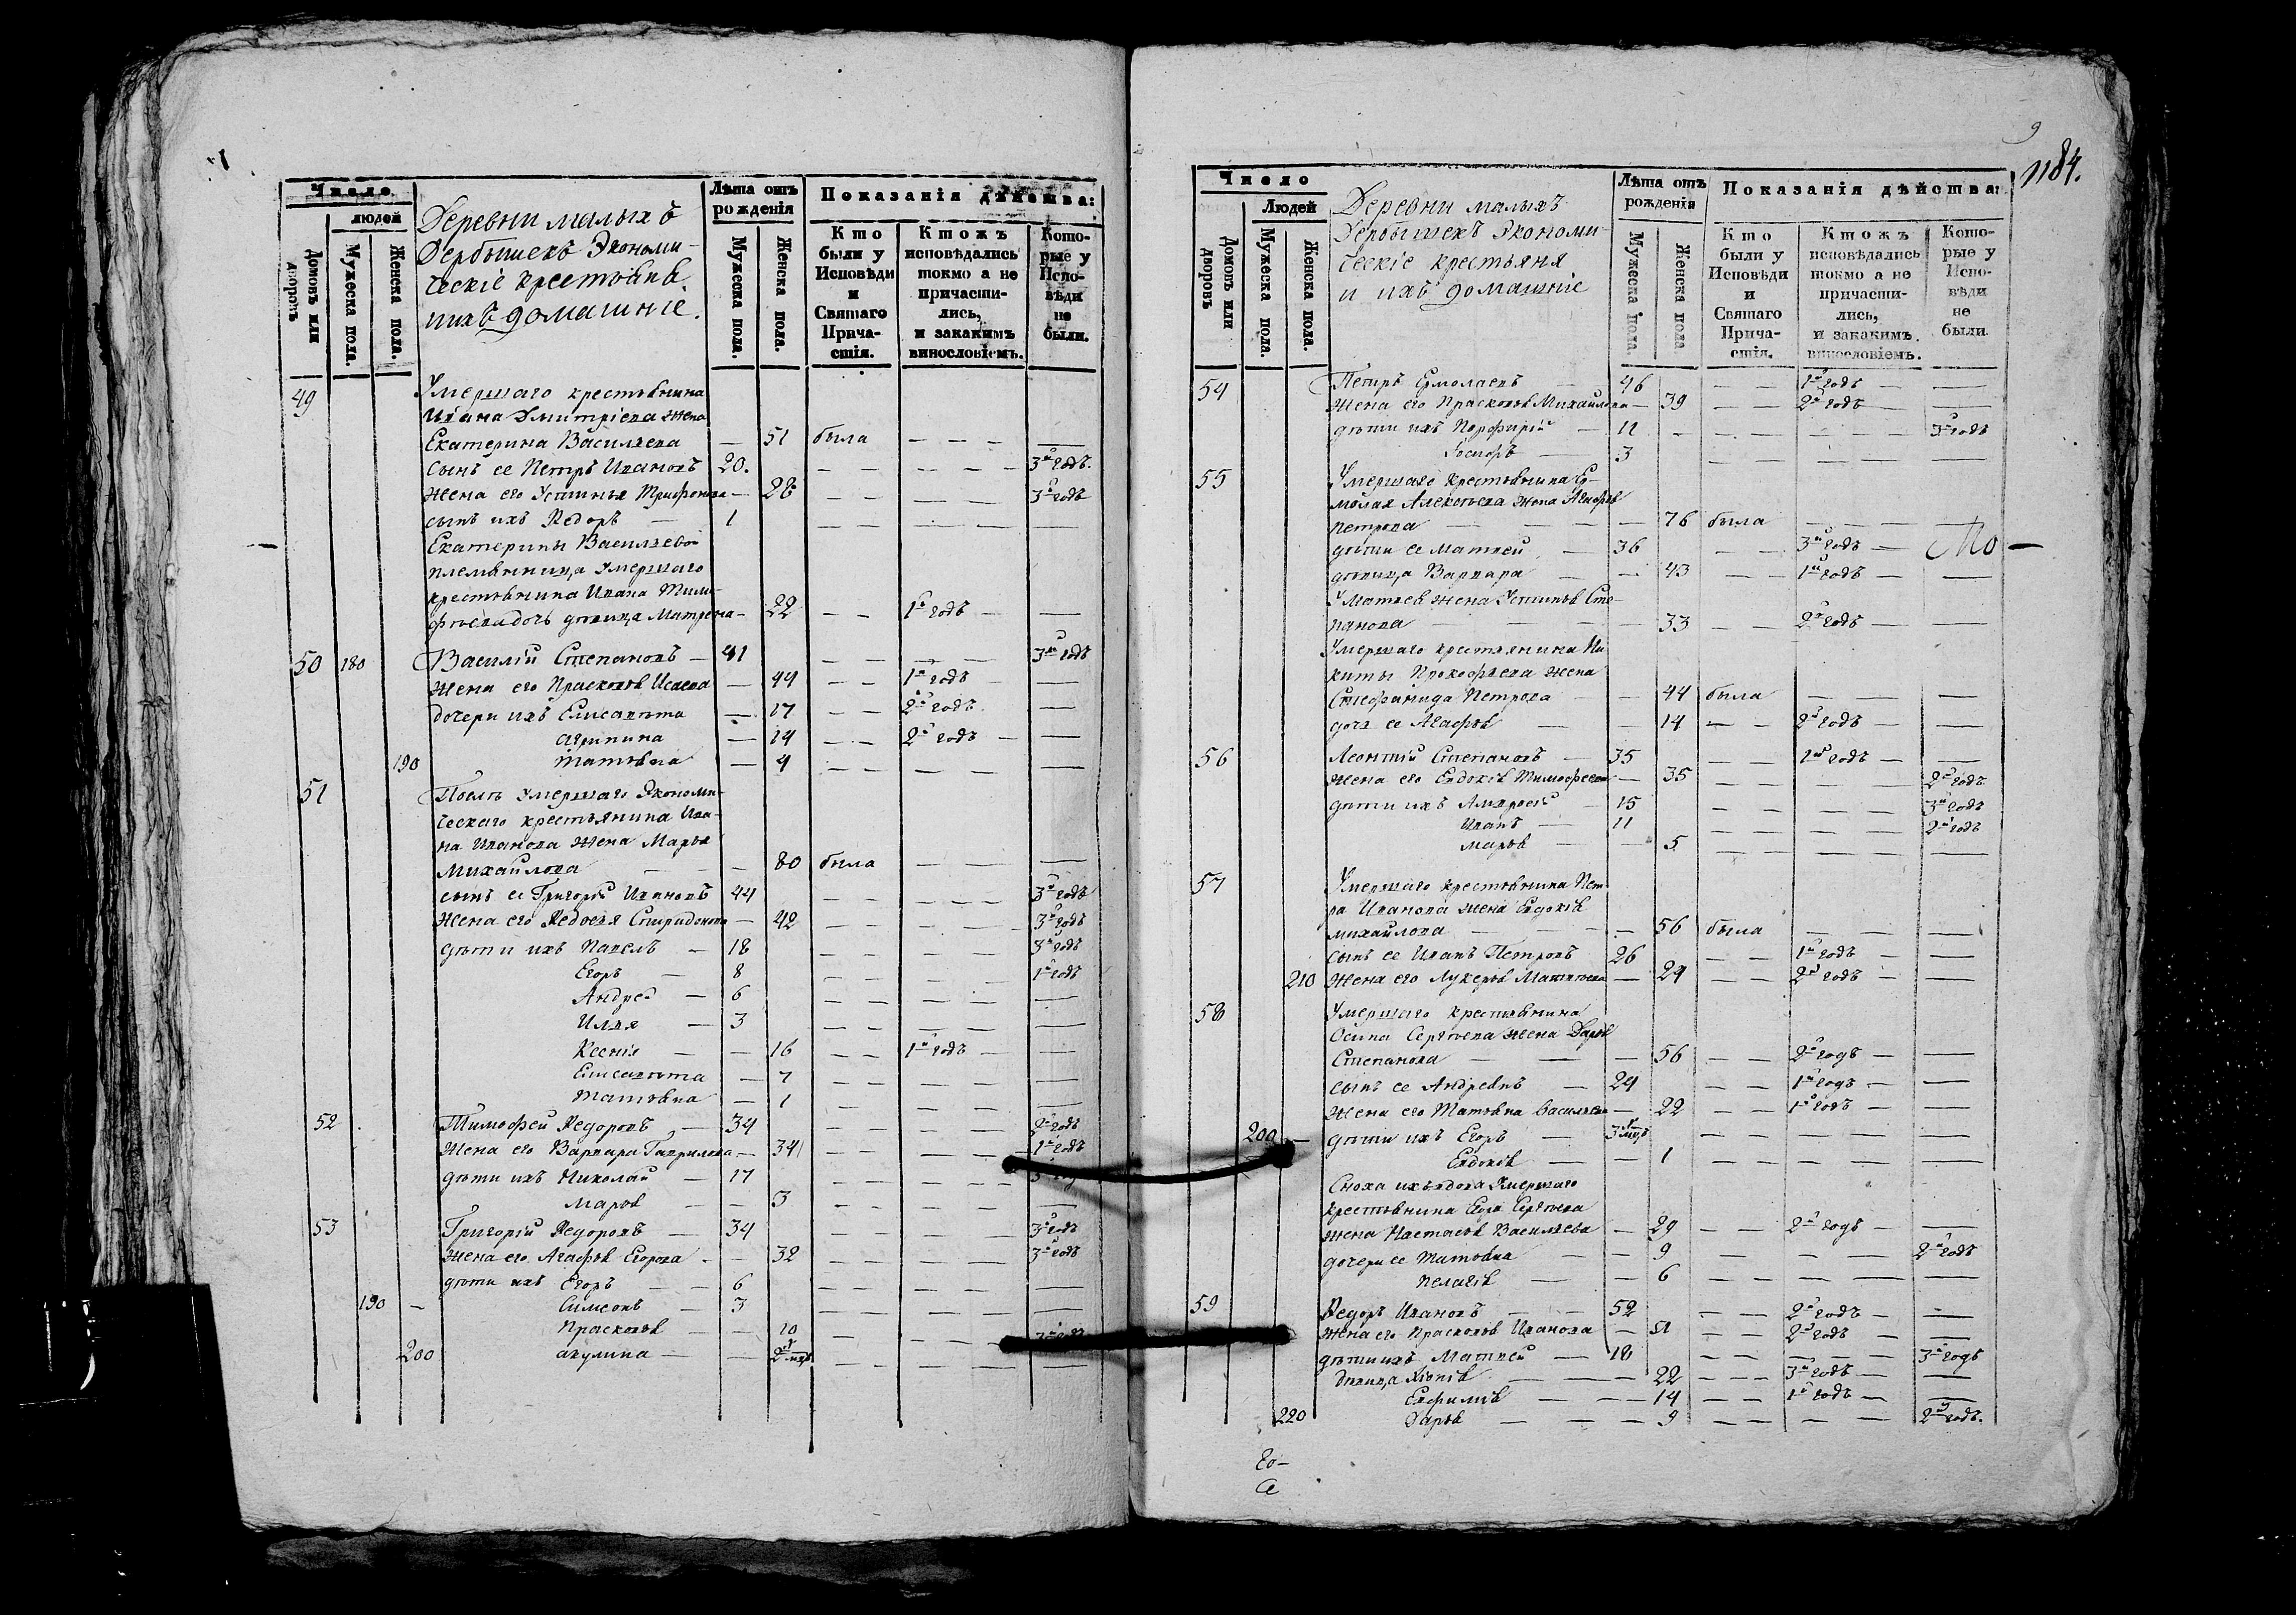 Число
людей
Домовъ или дворовъ
Мужеска пола.
Женска пола.
Деревни малыхъ
Дербышекъ Экономи-
ческіе крестьяня
и ихъ домашніе.
Лѣта отъ рожденія
Мужеска пола.
Женска пола.
Показанія дѣйства:
Кто были у Исповѣди и Святаго Причастія.
Ктожъ исповѣдались токмо а не причастились, и закакимъ винословіемъ.
Которые у Исповѣди не были.
49 Умершаго крестьянина
Ивана Дмитріева жена
Екатерина Васильева — 51 была — — — —
сынъ ее Петръ Ивановъ 20. — — — — — 3й годъ.
жена его Устинья Трифонова — 28 — — — — — 3й годъ
сынъ ихъ Ѳедоръ — 1 — — — — — —
Екатерины Васильевой
племянница умершаго
крестьянина Ивана Тимо-
фѣева дочь дѣвица Матрена — 22 — — 1й годъ — —
50 180 Василій Степановъ — 41 — — — — 3й годъ
жена его Прасковья Исаева — 44 — — 1й годъ — —
дочери ихъ Елисавета — 17 — — 2й годъ — —
Агрипина — 14 — — 2й годъ — —
190 Татьяна — 4 — — — — — —
51 Послѣ умершаго Экономи-
ческаго крестьянина Ива-
на Иванова жена Марья
Михайлова — — 80 была — — — —
сынъ ее Григорій Ивановъ 44 — — — — — 3й годъ
жена его Ѳедосья Спиридонова — 42 — — — — — 3й годъ
дѣти ихъ Павелъ — 18 — — — — — 3й годъ
Егоръ — 8 — — — — — 1й годъ
Андрей — 6 — — — — — —
Илья — 3 — — — — — —
Ксенія — — 16 — — 1й годъ — —
Елисавета — 7 — — — — — —
Татьяна — 1 — — — — — —
52 Тимофей Ѳедоровъ — 34 — — — — — 2й годъ
жена его Варвара Гаврилова — 34 — — — — — 1й годъ
дѣти ихъ Николай — 17 — — — — —
Марья — — 3 — — — — — —
53 Григорій Ѳедоровъ — 34 — — — — — 3й годъ
жена его Агафья Егорова - 32 — — — — — 3й годъ
дѣти ихъ Егоръ — — 6 — — — — — —
190 — Симеонъ — 3 — — — — — —
Прасковья — — 10 — — — — —
200 Акулина — — 2 мца — — — — — —
9
1184.
Число
Людей
Домовъ или дворовъ
Мужеска пола.
Женска пола.
Деревни малыхъ
Дербышекъ Экономи-
ческіе крестьяня
и ихъ домашніе
Лѣта отъ рожденія
Мужеска пола.
Женска пола
Показанія дѣйства:
Кто были у Исповѣди и Святаго Причастія.
Ктожъ исповѣдались токмо а не причастились, и закакимъ винословіемъ.
Которые у Исповѣди не были.
54 Петръ Ермолаевъ — 46 — — 1й годъ — —
жена его Прасковья Михайлова — 39 — — 2й годъ — —
дѣти ихъ Порфирій — 11 — — — — — 3й годъ
3 — — — — — —
55 Умершаго крестьянина Ер-
молая Алексѣева жена Агафья
Петрова — — — 76 была — — — —
дѣти ее Матвей — 36 — — 3й годъ —
дѣвица Варвара — — 43 — — 1й годъ — —
У Матвея жена Устинья Сте-
панова — — — 33 — — 2й годъ — —
Умершаго крестьянина Ни-
киты Прокофьева жена
Стефанида Петрова — 44 была — — —
дочь ее Агафья — — 14 — — 2й годъ — —
56 Леонтій Степановъ — 35 — — 1й годъ — —
жена его Евдокія Тимофеева — 35 — — — — — 2й годъ
дѣти ихъ Андрей — 15 — — — — — 3й годъ
Иванъ — 11 — — — — — 2й годъ
Марья — — 5 — — — — — —
57 Умершаго крестьянина Пет-
ра Иванова жена Евдокія
Михайлова — — — 56 была — — —
сынъ ее Иванъ Петровъ 26 — — 1й годъ — —
210 жена его Лукерья Матвѣева — 24 — — 2й годъ — —
58 Умершаго крестьянина
Осипа Сергѣева жена Дарья
Степанова — — — 56 — — 2й годъ — —
сынъ ее Андреянъ — 24 — — 1й годъ — —
жена его Татьяна Васильева — 22 — — 1й годъ — —
200 — дѣти ихъ Егоръ — 3 мца — — — — —
Евдокія — — 1 — — — — — —
Сноха ихъ вдова умершаго
крестьянина Егора Сергѣева
жена Настасья Васильева — 29 — — 2й годъ — —
дочери ее Татьяна — — 9 — — — — 2й годъ
Пелагія — — 6 — — — — — —
59 Ѳедоръ Ивановъ — — 52 — — 2й годъ — —
жена его Прасковья Иванова — 51 — — 2й годъ — —
дѣти ихъ Матвей — 18 — — — — — 3й годъ
дѣвица Хіонія — — — 22 — — — 3й годъ — —
Евфимія — — — 14 — — 1й годъ — —
220 Дарья — — — 9 — — — — 2й годъ.